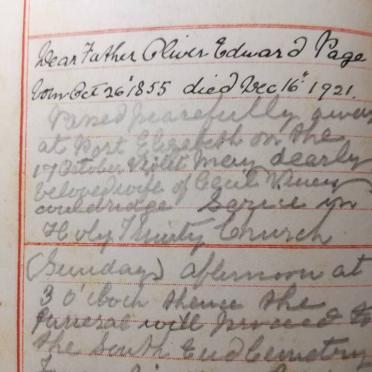 Dear Father Oliver Edward Page
born Oct 26' 1855 died Dec 16" 1921.
Passed peacefully away
at Port Elizabeth on the
17 October Violet May dearly
beloved wife of Cecil Viney
Couldridge Service in
Holy Trinity Church
(Sunday) afternoon at
3 O'Clock thence the
funeral will proceed to
the South End Cemetery